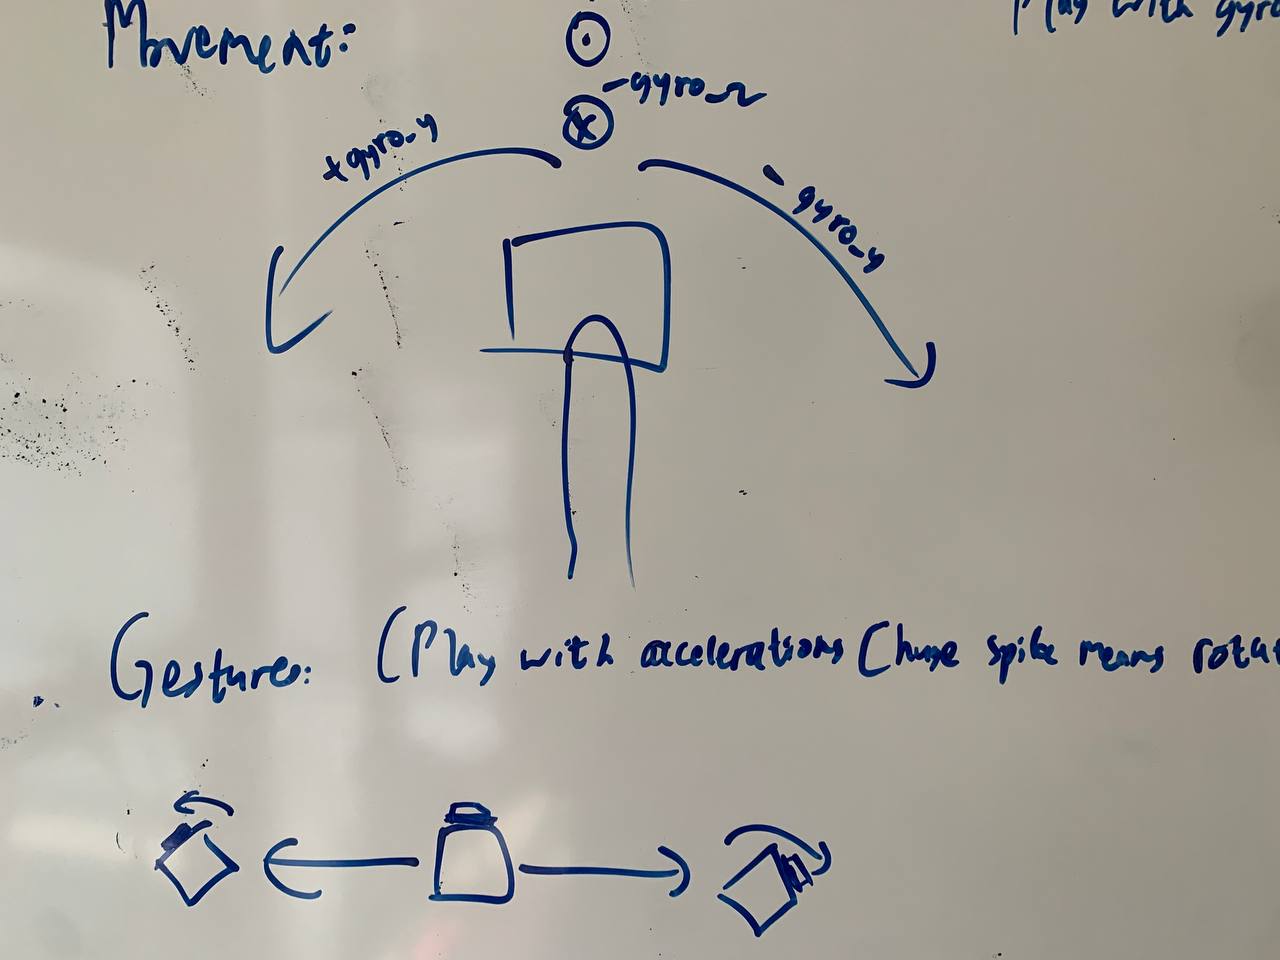 Movement:
Play with gyro
-gyro_z
+gyro_y
- gyro_y
Gestures: (Play with accelerations (huge spike means rotat